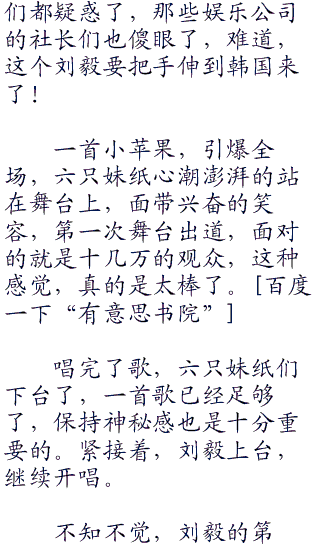 们都疑惑了，那些娱乐公司
的社长们也傻眼了，难道，
这个刘毅要把手伸到韩国来
了！
一首小苹果，引爆全
场，六只妹纸心潮澎湃的站
在舞台上，面带兴奋的笑
容，第一次舞台出道，面对
的就是十几万的观众，这种
感觉，真的是太棒了。[百度
一下“有意思书院”]
唱完了歌，六只妹纸们
下台了，一首歌已经足够
了，保持神秘感也是十分重
要的。紧接着，刘毅上台，
继续开唱。
不知不觉，刘毅的第